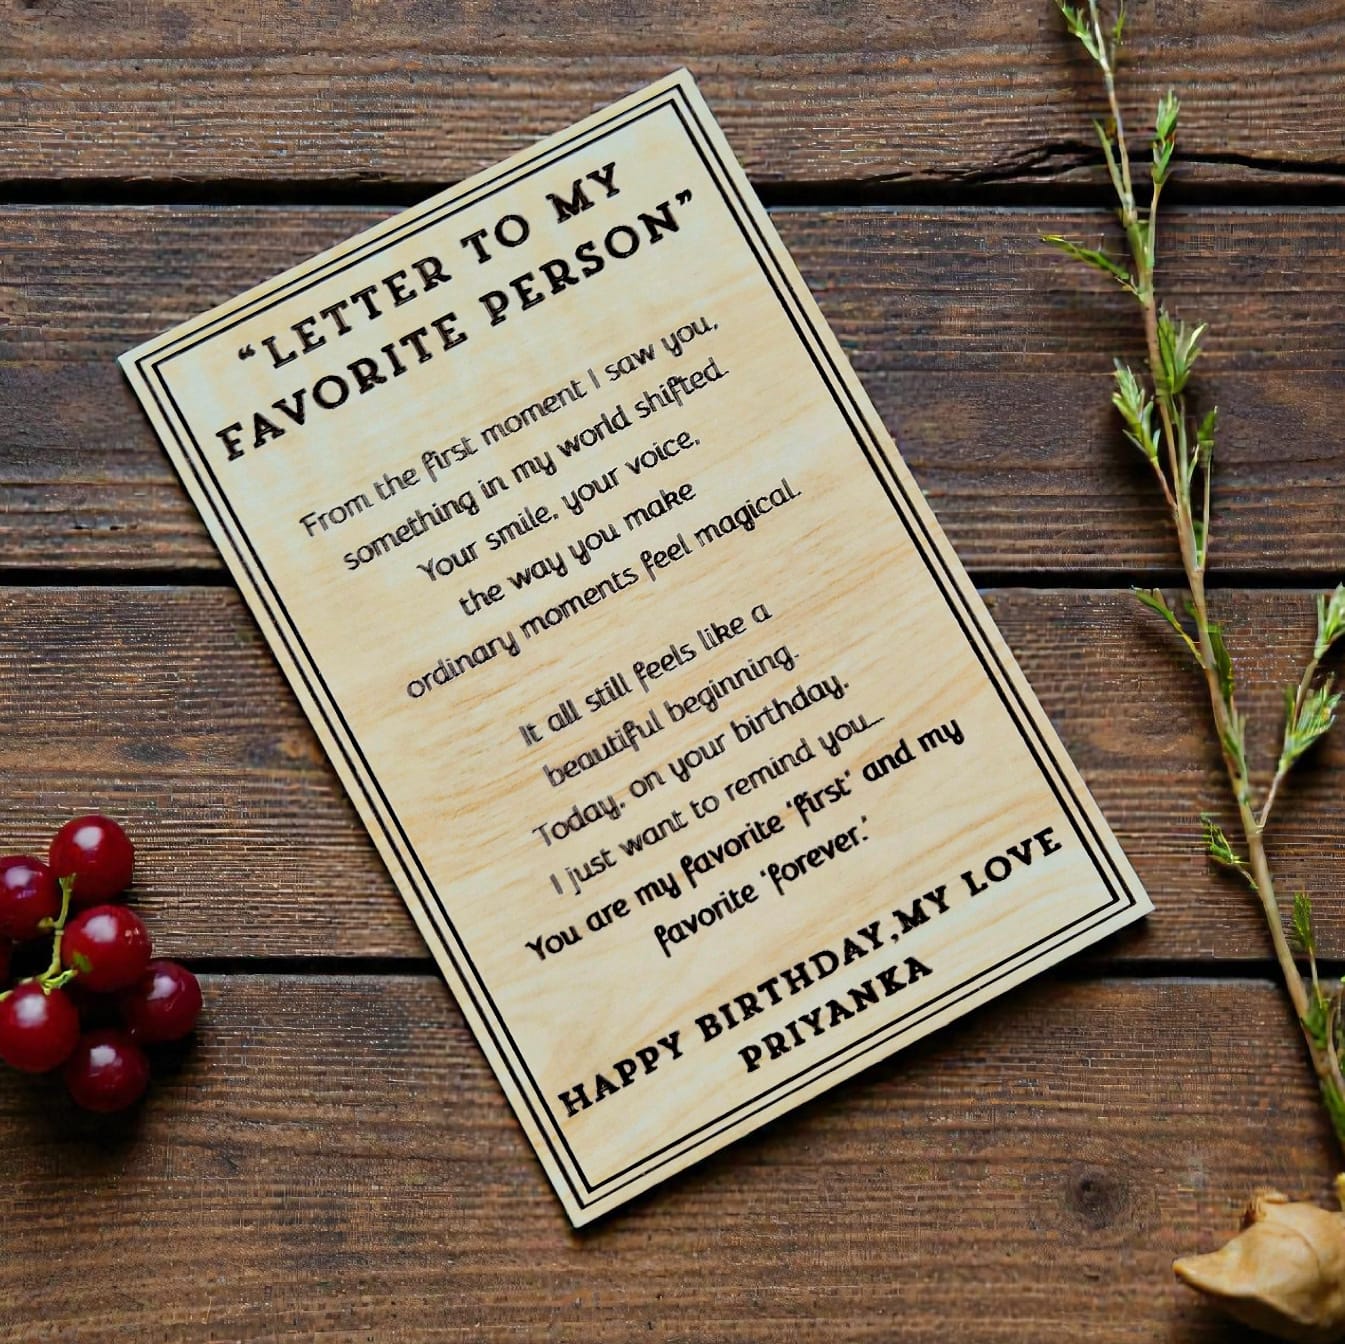 “LETTER TO MY
FAVORITE PERSON”
From the first moment I saw you,
something in my world shifted.
Your smile, your voice,
the way you make
ordinary moments feel magical.
It all still feels like a
beautiful beginning.
Today, on your birthday,
I just want to remind you...
You are my favorite ‘first’ and my
favorite ‘forever.’
HAPPY BIRTHDAY,MY LOVE
PRIYANKA